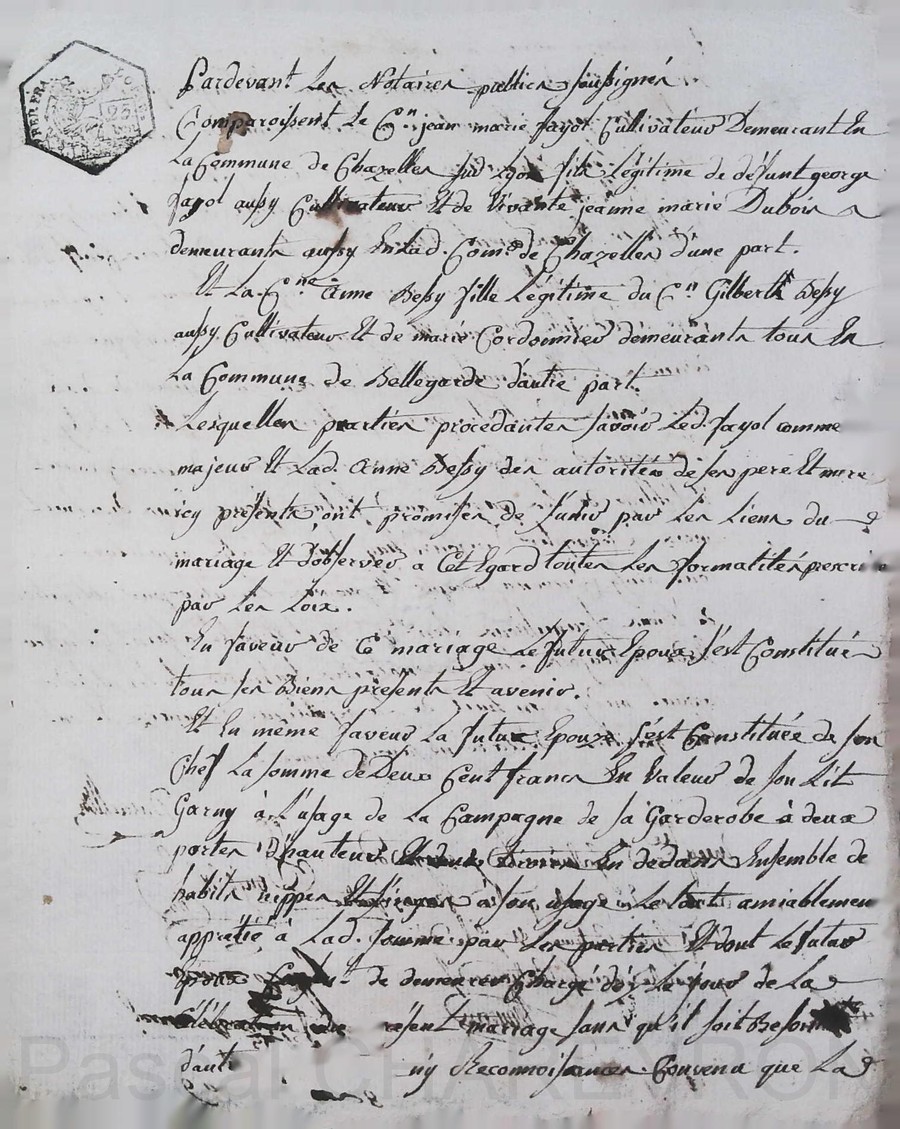 REP. FRA
Pardevant Les Notaires publics soussignés
Comparoissent Le C.en jean marie fayol Cultivateur Demeurant En
La Commune de Chazelles sur Lyon fils Légitime de défunt george
fayol aussy Cultivateur Et de vivante jeanne marie Dubois
demeurants aussy En Lad. Com.e de Chazelles d'une part.
Et La C.ne Anne Bessy fille Légitime du C.n Gilbert Bessy
aussy Cultivateur Et de marie Cordonnier demeurants tous En
La Commune de Bellegarde d'autre part.
Lesquelles parties procedantes savoir Led. fayol comme
majeur Et Lad. Anne Bessy des autorités de ses pere Et mere
icy présents ont promises de s'unir par Les Liens du
mariage Et d'observer a Cet Egard toutes Les formalités prescri
par Les Loix.
En faveur de Ce mariage Le futur Epoux s'est Constitué
tous ses Biens présents Et avenir.
Et En même faveur La future Epouze s'est Constituée de son
Chef La somme de Deux Cent francs En Valeur de son Lit
Garny à L'usage de La Campagne de sa Garderobe à deux
portes d'hauteur En dedans Ensemble de
habits nippes à son usage Le tout amiablemen
apprétié à Lad. somme par Les parties Et dont Le futur
époux de demeurer Chargé dès Le jour de La
Célébration résent mariage sans qu'il soit Besoin
d'aut ny Reconnoissances Convenu que La
Pascal CHAREYRON